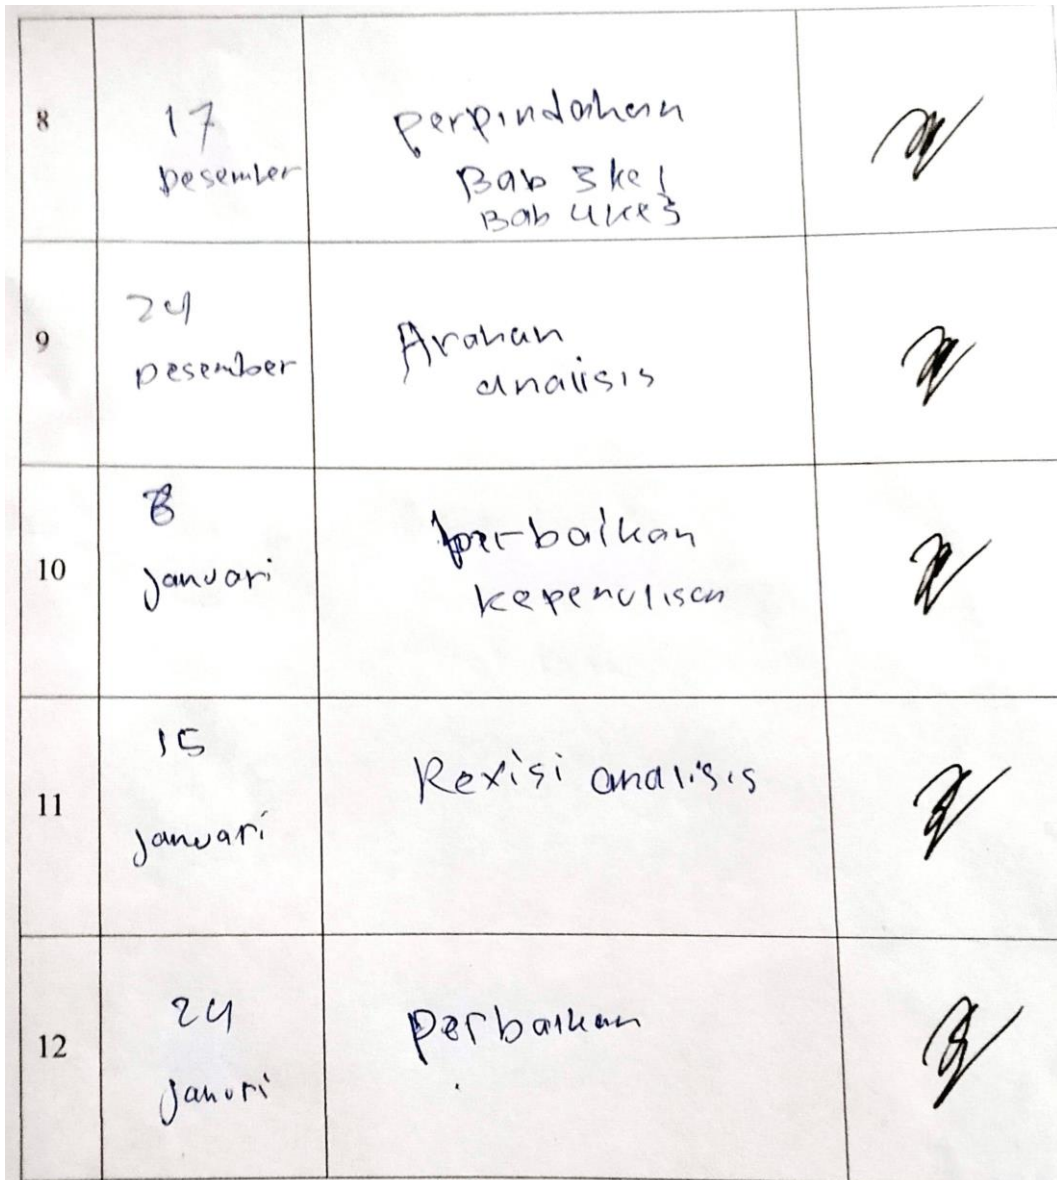 8
17
Desember
perpindahan
Bab 3 ke 1
Bab 4 ke 3
9
24
Desember
Arahan
analisis
10
8
Januari
perbaikan
kepenulisan
11
15
Januari
Revisi analisis
12
24
Januri
perbaikan